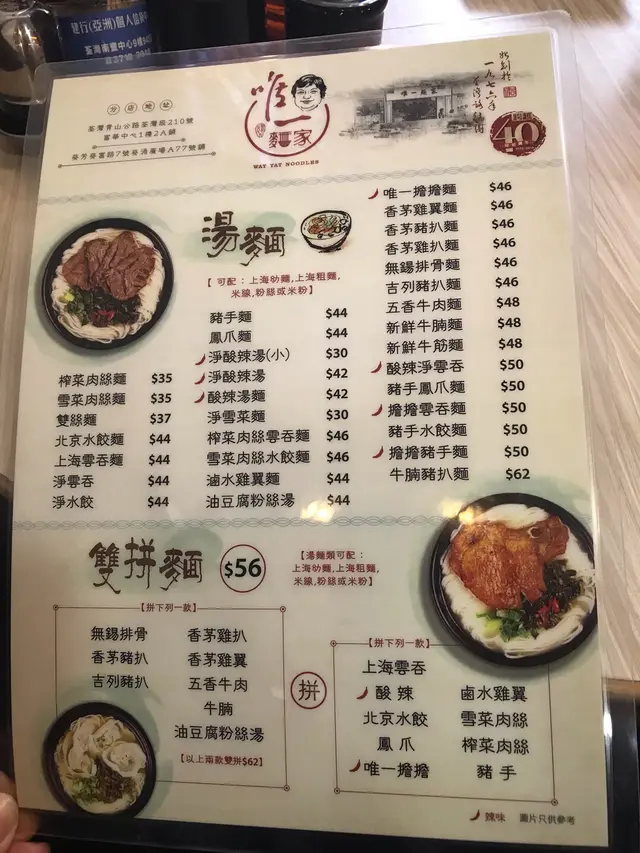 建行(亞洲)
荃灣南豐中心
分店地址
荃灣青山公路荃灣段210號
富華中心1樓2A舖
葵芳葵富路7號葵涌廣場A77號舖
唯一
麵家
WAY YAT NOODLES
唯一麵家
一九七六年
40
湯麵
【可配：上海幼麵,上海粗麵,
米線,粉絲或米粉】
榨菜肉絲麵 $35
雪菜肉絲麵 $35
雙絲麵 $37
北京水餃麵 $44
上海雲吞麵 $44
淨雲吞 $44
淨水餃 $44
豬手麵 $44
鳳爪麵 $44
淨酸辣湯(小) $30
淨酸辣湯 $42
酸辣湯麵 $42
淨雪菜麵 $30
榨菜肉絲雲吞麵 $46
雪菜肉絲水餃麵 $46
滷水雞翼麵 $44
油豆腐粉絲湯 $44
唯一擔擔麵 $46
香茅雞翼麵 $46
香茅豬扒麵 $46
香茅雞扒麵 $46
無錫排骨麵 $46
吉列豬扒麵 $46
五香牛肉麵 $48
新鮮牛腩麵 $48
新鮮牛筋麵 $48
酸辣淨雲吞 $50
豬手鳳爪麵 $50
擔擔雲吞麵 $50
豬手水餃麵 $50
擔擔豬手麵 $50
牛腩豬扒麵 $62
雙拼麵 $56
【湯麵類可配：
上海幼麵,上海粗麵,
米線,粉絲或米粉】
【拼下列一款】
無錫排骨
香茅豬扒
吉列豬扒
香茅雞扒
香茅雞翼
五香牛肉
牛腩
油豆腐粉絲湯
【以上兩款雙拼$62】
拼
【拼下列一款】
上海雲吞
酸辣
北京水餃
鳳爪
唯一擔擔
鹵水雞翼
雪菜肉絲
榨菜肉絲
豬手
辣味 圖片只供參考